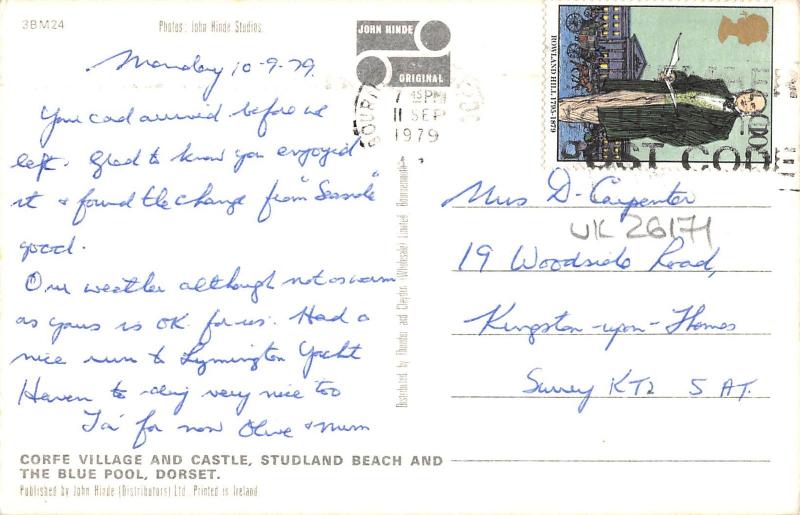 3BM24
Photos: John Hinde Studios
JOHN HINDE
ORIGINAL
ROWLAND HILL, 1795-1879
7 45 PM
11 SEP
1979
Monday 10-9-79.
Your card arrived before we
left. Glad to know you enjoyed
it & found the change from "Seaside"
good.
Our weather although not as warm
as yours is OK for us. Had a
nice run to Lymington Yacht
Haven to-day very nice too
Ta' for now Olive & Mum
Mrs D. Carpenter
UK 26171
19 Woodside Road,
Kingston-upon-Thames
Surrey KT2 5AT.
Distributed by Thunder and Clayden (Wholesale) Limited, Bournemouth
CORFE VILLAGE AND CASTLE, STUDLAND BEACH AND
THE BLUE POOL, DORSET.
Published by John Hinde (Distributors) Ltd. Printed in Ireland.